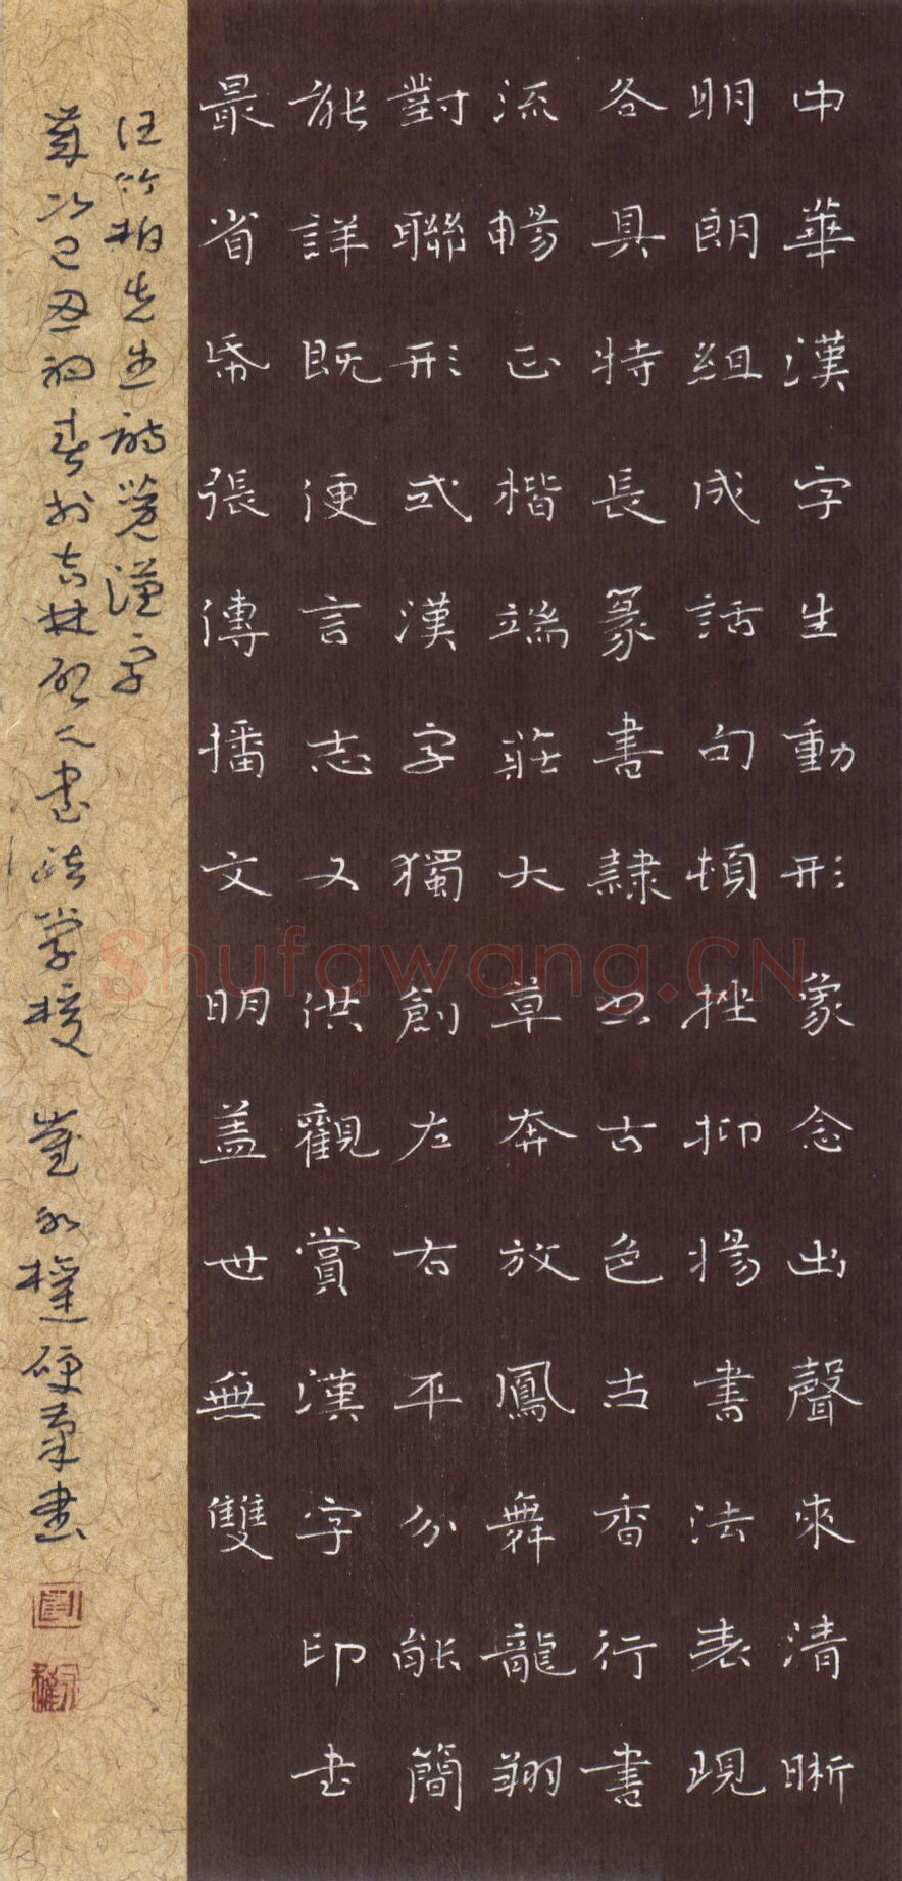 中華漢字生動形象念出聲來清晰
明朗組成話句頓挫抑揚書法表現
各具特長篆書隸書古色古香行書
流暢正楷端莊大草奔放鳳舞龍翔
對聯形式漢字獨創左右平分能簡
能詳既便言志又供觀賞漢字印书
最省希張傳播文明盖世無雙
汪竹柏先生詩赞漢字
歲次己丑初春於吉林硬人書法学校 崔永權硬筆書
Shufawang.CN